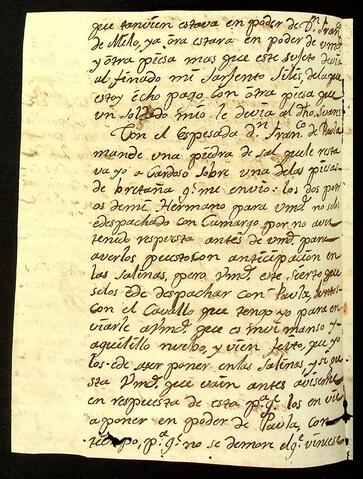 que tanvien estava en poder de Dn Fran.co
de Melo, ya óra estará en poder de vmd
y ótra piesa mas que este sujeto devia
al finado mi Sarjento Silis, de la que
estoy écho pago con ótra piesa que
un soldado mio le devia al dho. Suares
Con el Espesada Dn Fran.co de Paula
mande una piedra de sal que le resta
va yo a Cardoso sobre una de las piesas
de bretaña q.e me envio. los dos potros
os de mi Hermano para Vmd. no solos
edespachado con Camargo por no aver
tenido respuesta antes de Vmd. para
averlos puesto con antisipacion en
las salinas, pero Vmd. este sierto que
selos éde despachar con Paula, juntos
con el Cavallo que tengo yo para en
viarle a Vmd. que es mui manso y
aguilillo nuebo, y vien fuerte, que yo
los éde aser poner en las Salinas, y si gu
sta Vmd. que vain antes aviseme
en respuesta de esta p.a q.e los en vie
a poner en poder de Paula, con
tiempo, p.a q.e no se demore el q.e viniese